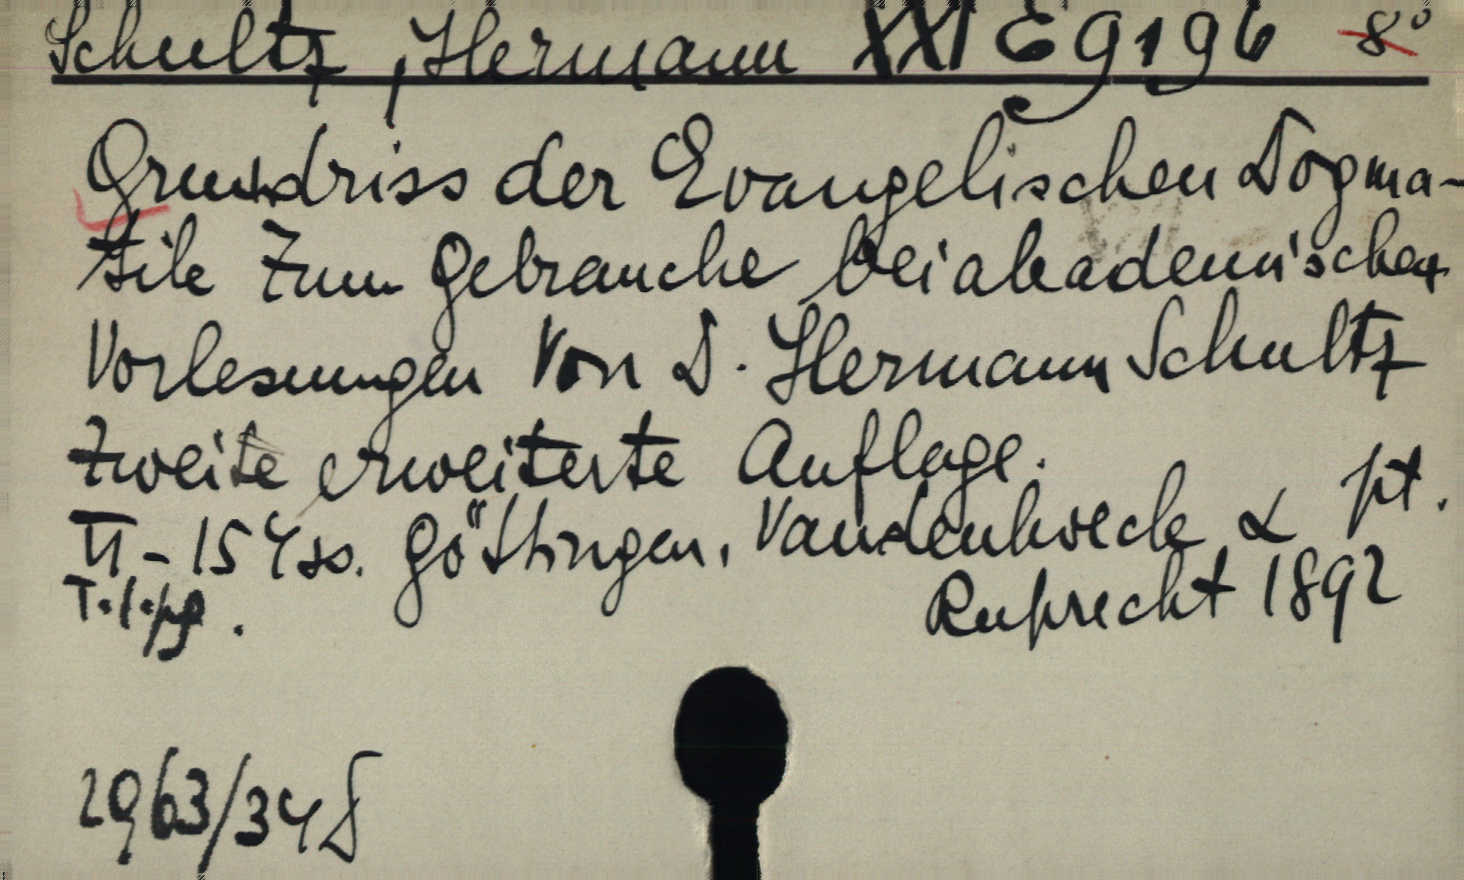 Schultz, Hermann XXI E 9196 8°
Grundriss der Evangelischen Dogma-
tik zum Gebrauche bei akademischen
Vorlesungen von D. Hermann Schultz
zweite erweiterte Auflage. pt.
VI - 154 ss. Göttingen, Vandenhoeck &
Ruprecht 1892
T.l.pf.
1963/34